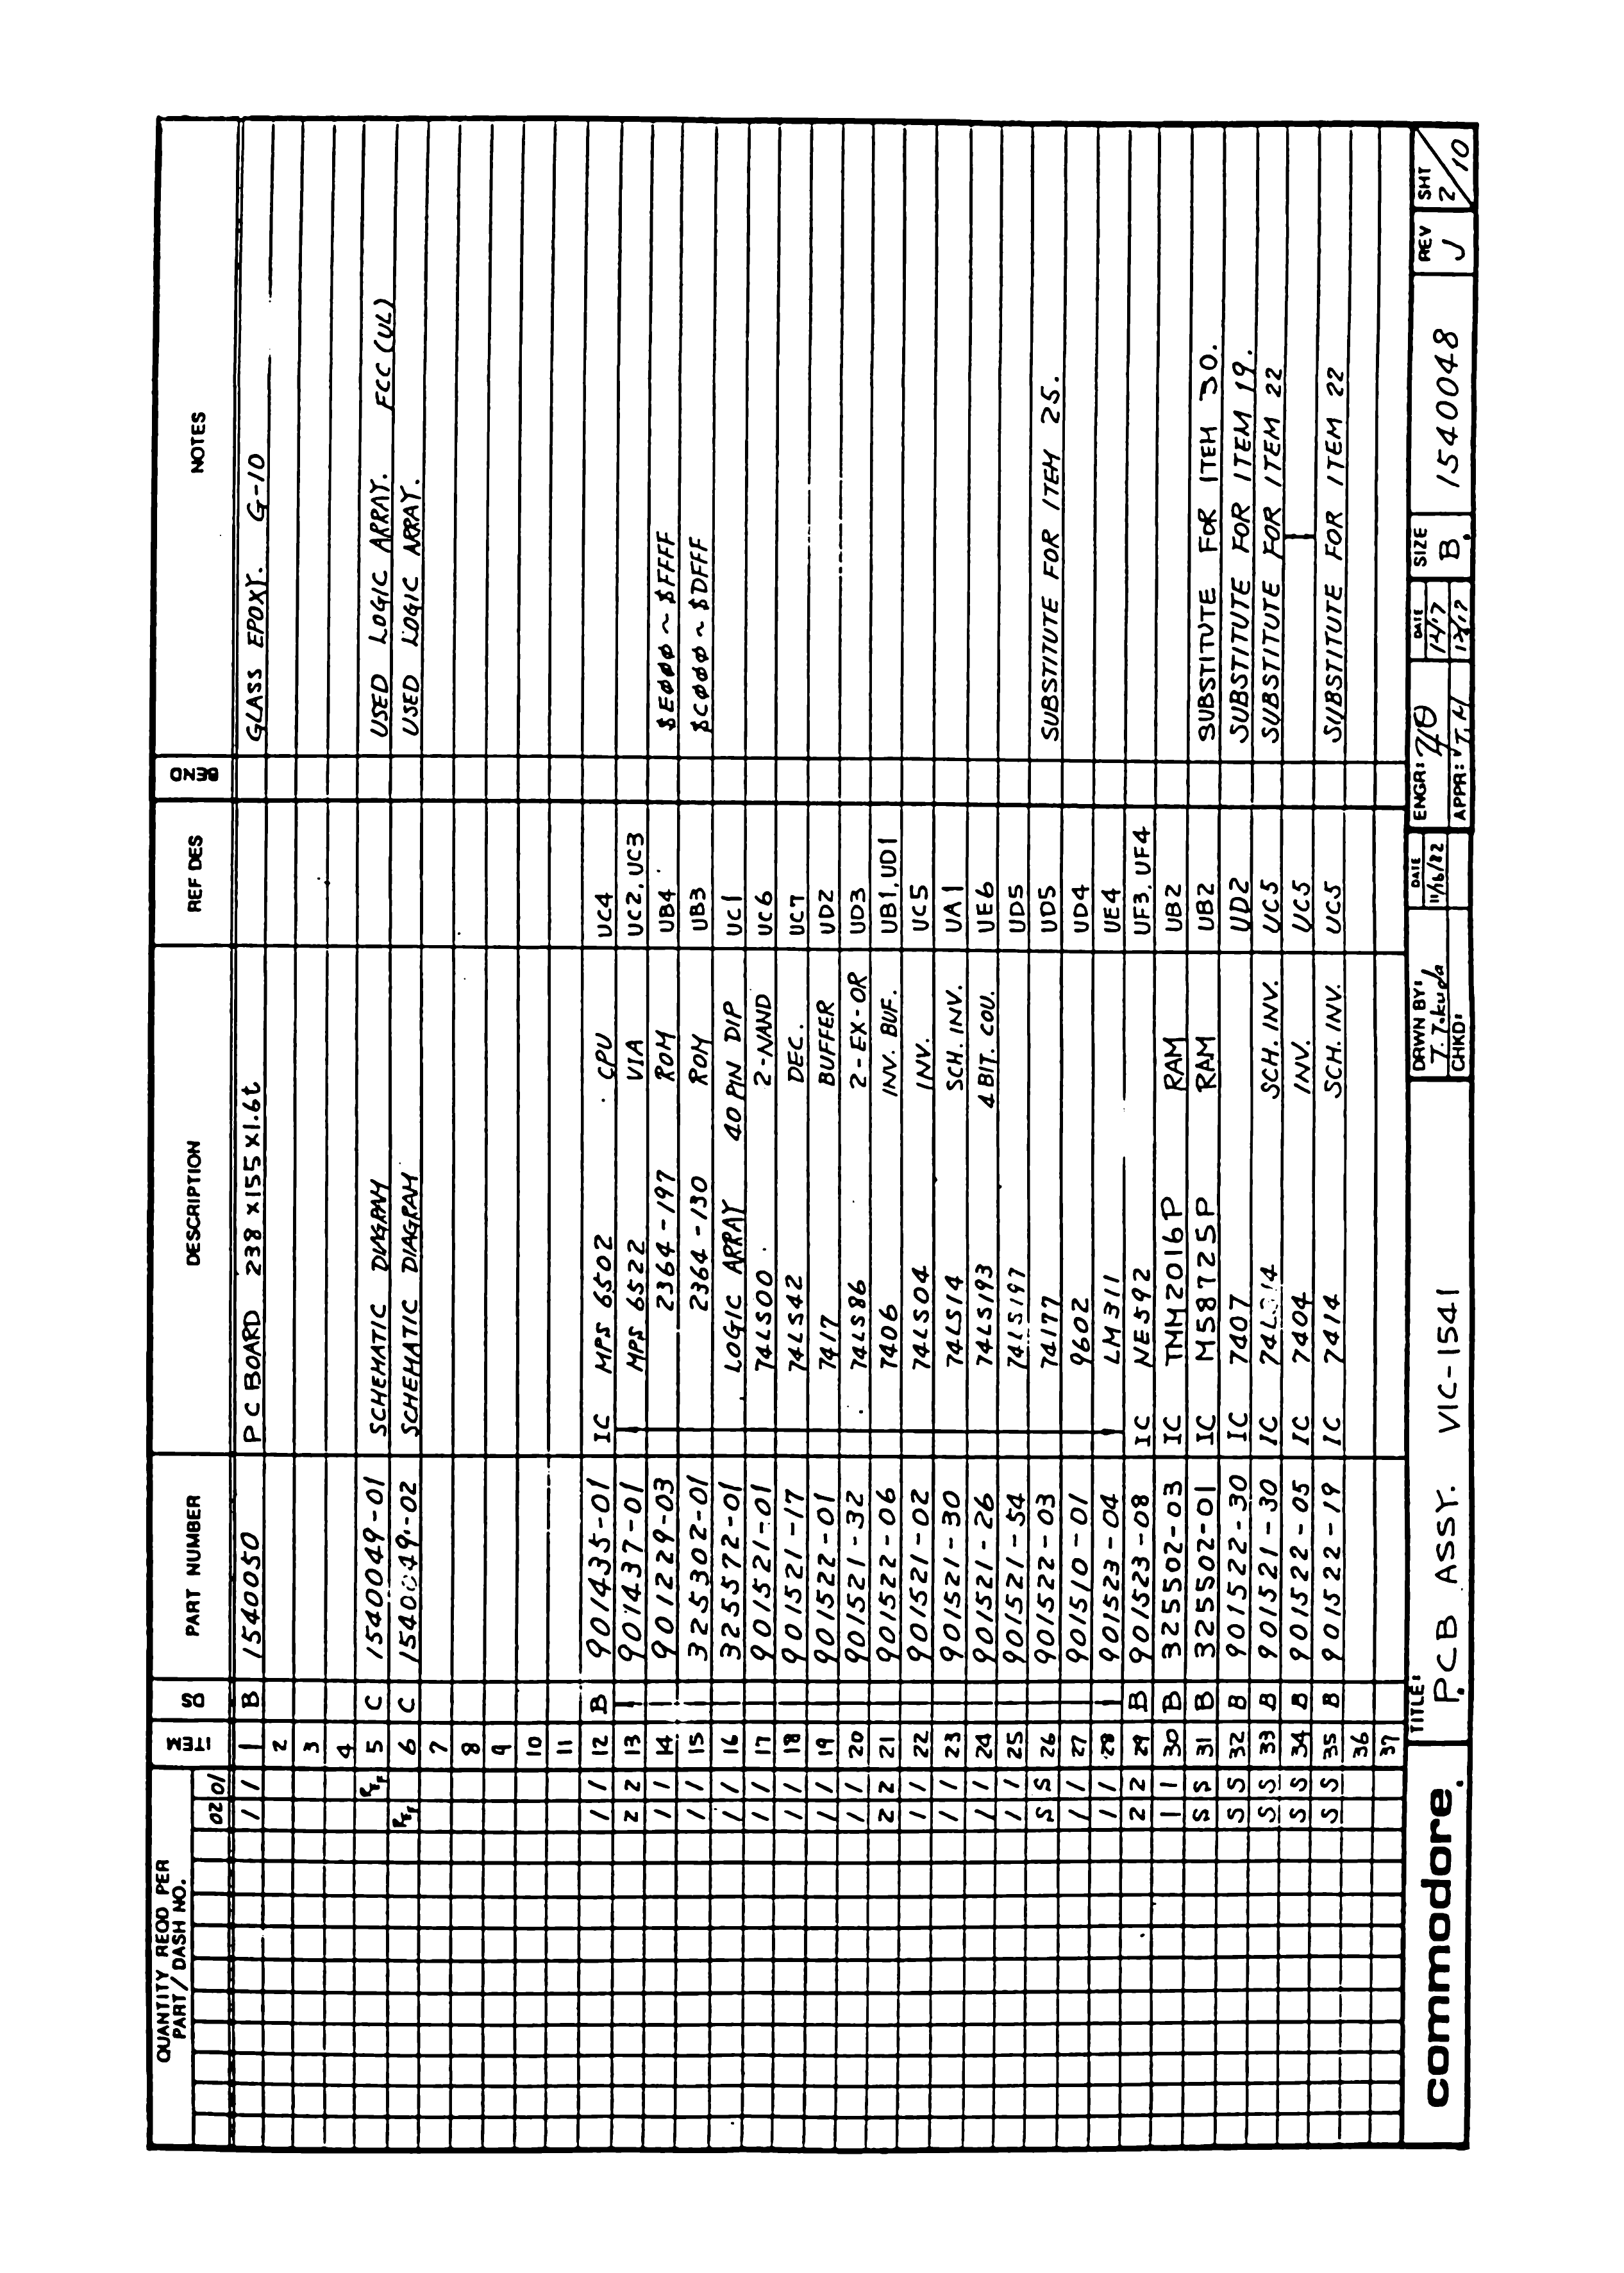 QUANTITY REQD PER PART/DASH NO. 02 01 ITEM DS PART NUMBER DESCRIPTION REF DES BEND NOTES
1 1 1 B 1540050 P C BOARD 238 x155 x1.6t GLASS EPOXY. G-10
2
3
4
Ref 5 C 1540049-01 SCHEMATIC DIAGRAM USED LOGIC ARRAY. FCC (UL)
Ref 6 C 1540049-02 SCHEMATIC DIAGRAM USED LOGIC ARRAY.
7
8
9
10
11
1 1 12 B 901435-01 IC MPS 6502 CPU UC4
2 2 13 901437-01 MPS 6522 VIA UC2, UC3
1 1 14 901229-03 2364-197 ROM UB4 $E000 ~ $FFFF
1 1 15 325302-01 2364-130 ROM UB3 $C000 ~ $DFFF
1 1 16 325572-01 LOGIC ARRAY 40 PIN DIP UC1
1 1 17 901521-01 74LS00 2-NAND UC6
1 1 18 901521-17 74LS42 DEC. UC7
1 1 19 901522-01 7417 BUFFER UD2
1 1 20 901521-32 74LS86 2-EX-OR UD3
2 2 21 901522-06 7406 INV. BUF. UB1, UD1
1 1 22 901521-02 74LS04 INV. UC5
1 1 23 901521-30 74LS14 SCH. INV. UA1
1 1 24 901521-26 74LS193 4 BIT. COU. UE6
1 1 25 901521-54 74LS197 UD5
S S 26 901522-03 74177 UD5 SUBSTITUTE FOR ITEM 25.
1 1 27 901510-01 9602 UD4
1 1 28 901523-04 LM311 UE4
2 2 29 B 901523-08 IC NE592 UF3, UF4
1 1 30 B 325502-03 IC TMM2016P RAM UB2
S S 31 B 325502-01 IC M58725P RAM UB2 SUBSTITUTE FOR ITEM 30.
S S 32 B 901522-30 IC 7407 UD2 SUBSTITUTE FOR ITEM 19.
S S 33 B 901521-30 IC 74LS14 SCH. INV. UC5 SUBSTITUTE FOR ITEM 22
S S 34 B 901522-05 IC 7404 INV. UC5
S S 35 B 901522-19 IC 7414 SCH. INV. UC5 SUBSTITUTE FOR ITEM 22
36
37
commodore.
TITLE: PCB ASSY. VIC-1541
DRWN BY: T. Tokuda DATE 11/16/82
CHKD:
ENGR: DATE 12/17
APPR: T.M 12/17
SIZE B.
1540048
REV J
SHT 2/10